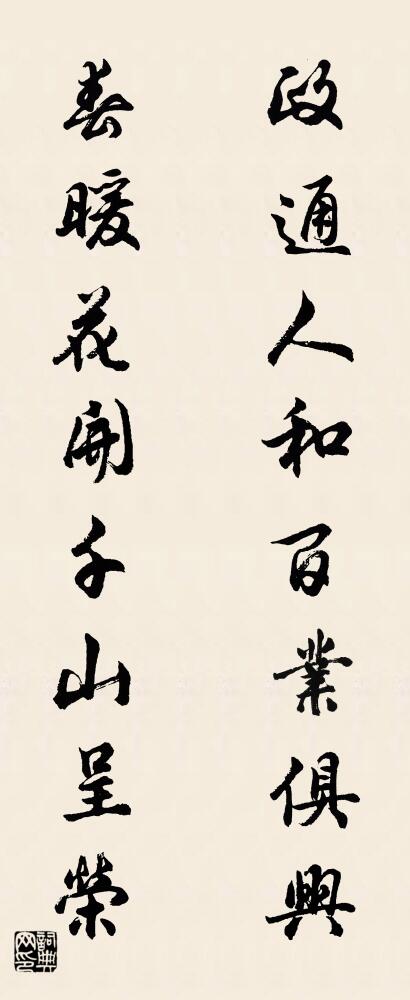 政通人和百業俱興
春暖花開千山呈榮
詞典網印